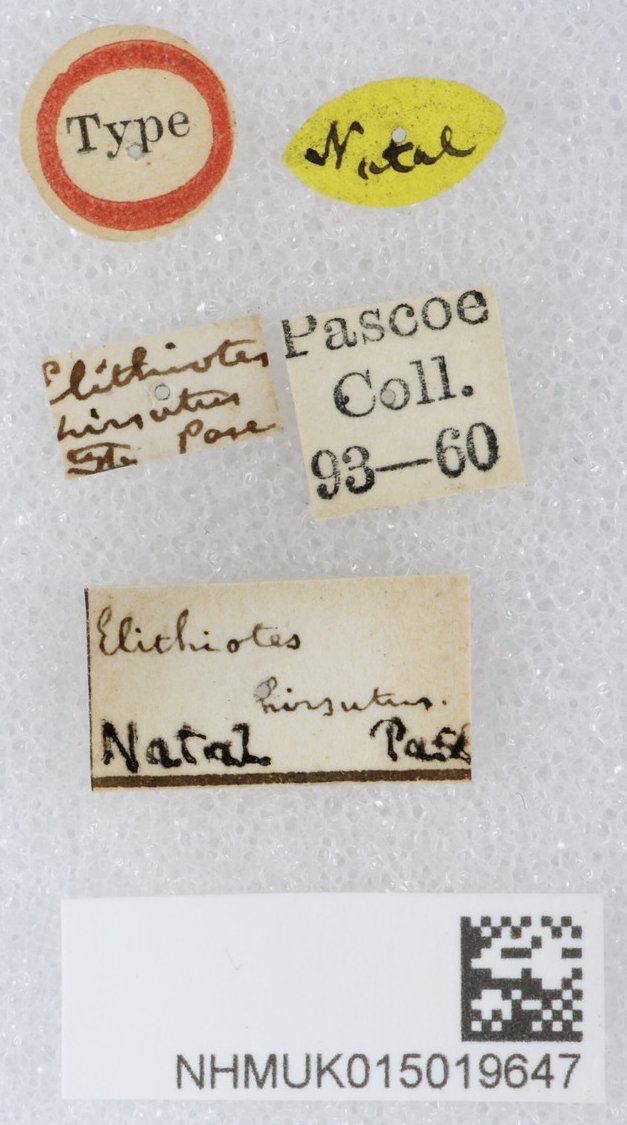 Type
Natal
Elithiotes
hirsutus
Pasc
Pascoe
Coll.
93—60
Elithiotes
hirsutus.
Natal Pasc
NHMUK015019647